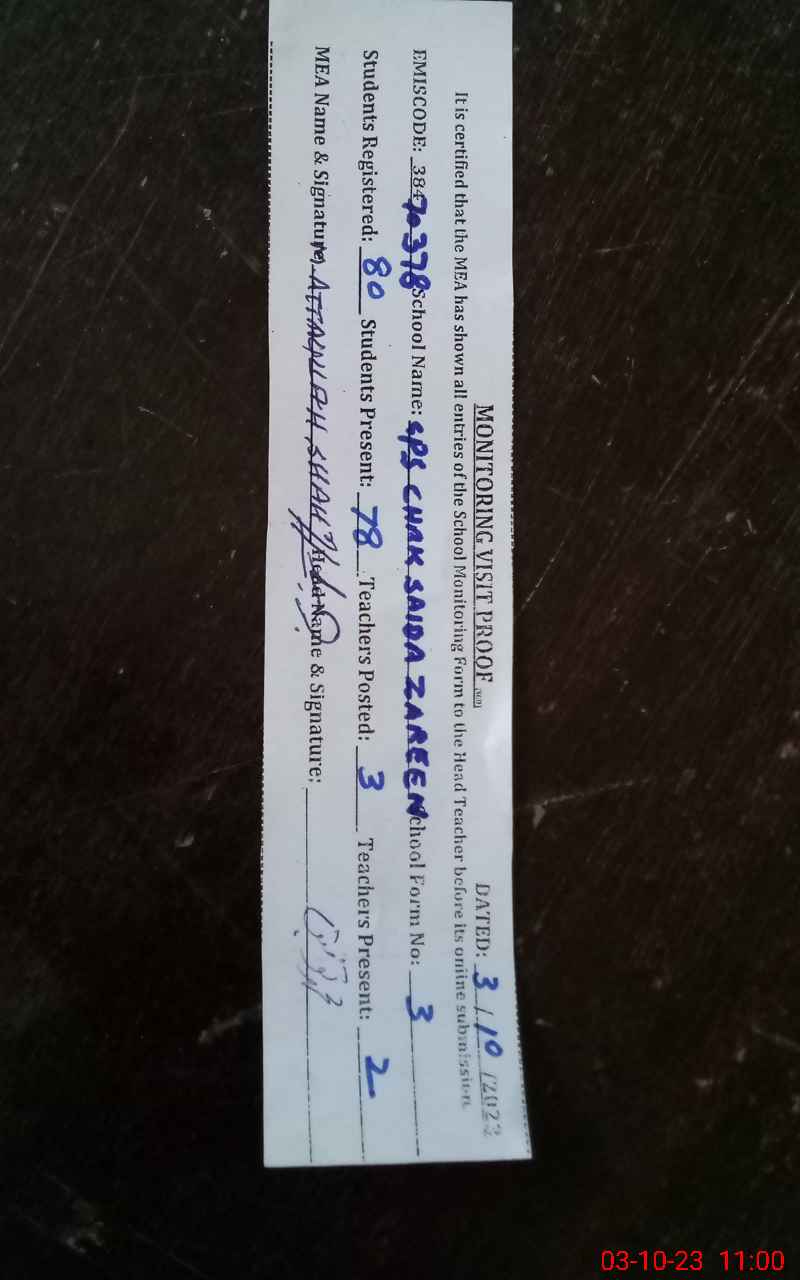 MONITORING VISIT PROOF DATED: 3 / 10 /2023
It is certified that the MEA has shown all entries of the School Monitoring Form to the Head Teacher before its online submission.
EMISCODE: 38470378 School Name: GPS CHAK SAIDA ZAREEN School Form No: 3
Students Registered: 80 Students Present: 78 Teachers Posted: 3 Teachers Present: 2
MEA Name & Signature: ATTAULLAH SHAH Head Name & Signature:
03-10-23 11:00